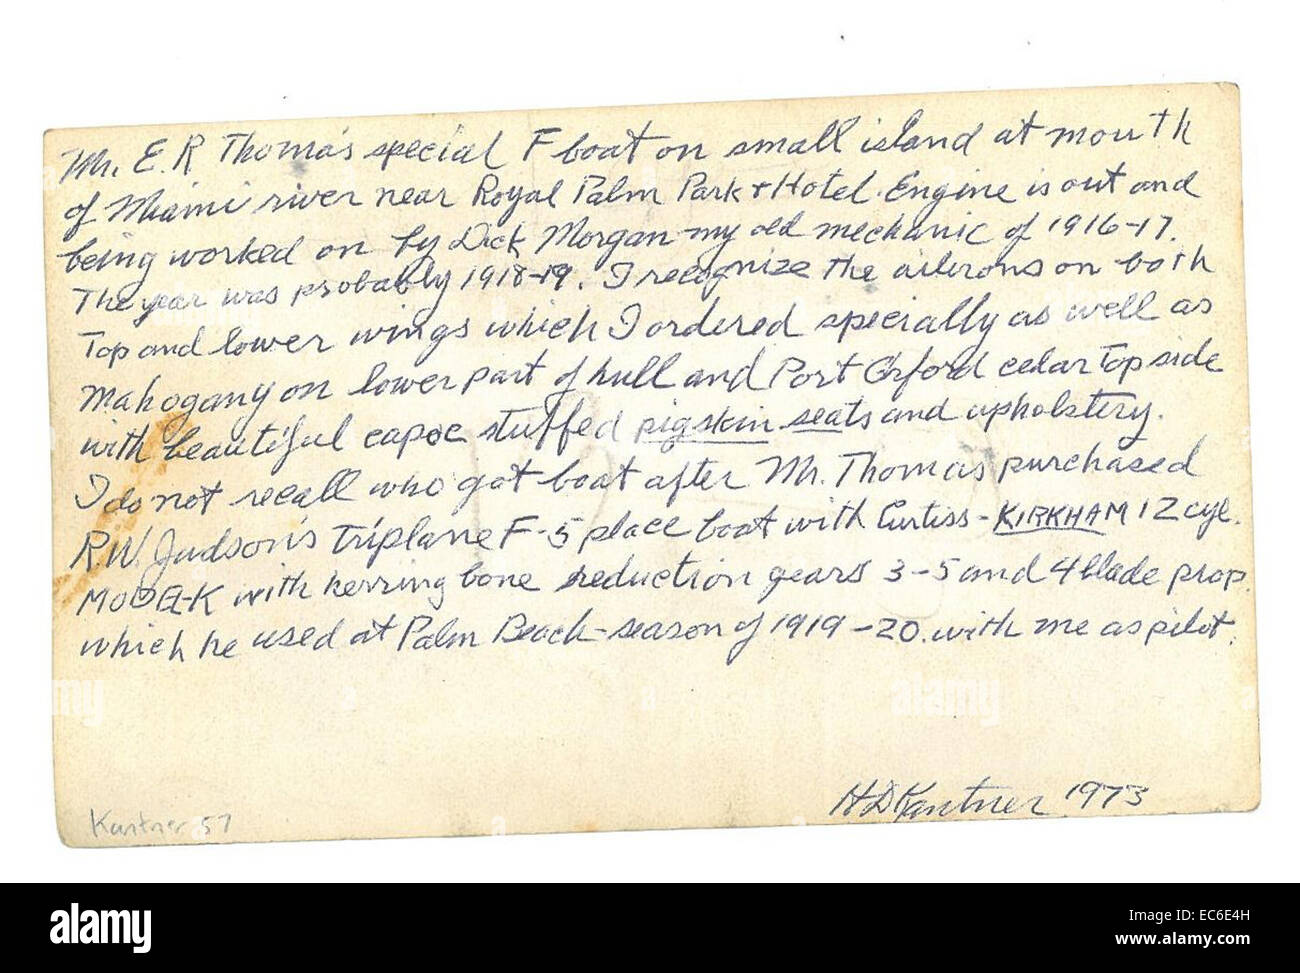 Mr. E. R Thomas's special F boat on small island at mouth
of Miami river near Royal Palm Park + Hotel. Engine is out and
being worked on by Dick Morgan-my old mechanic of 1916-17.
The year was probably 1918-19. I recognize the ailerons on both
Top and lower wings which I ordered specially as well as
Mahogany on lower part of hull and Port Orford cedar top side
with beautiful capoc stuffed pigskin seats and upholstery.
I do not recall who got boat after Mr. Thomas purchased
R.W. Judson's Triplane F-5 place boat with Curtiss-KIRKHAM 12 cyl.
MODEL-K with herring bone reduction gears 3-5 and 4 blade prop
which he used at Palm Beach-season of 1919-20. with me as pilot.
HD Kantner 1973
Kantner 57
alamy
alamy
alamy
Image ID: EC6E4H
www.alamy.com